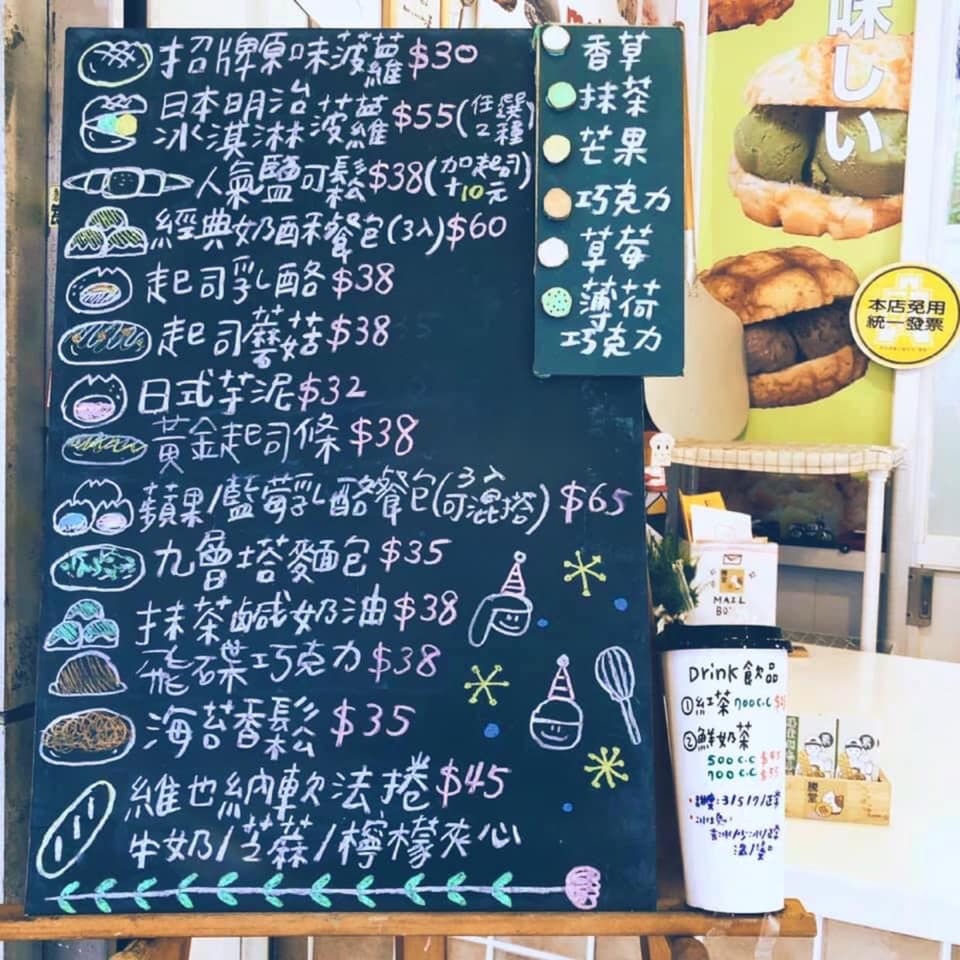 招牌原味菠蘿$30
日本明治
冰淇淋菠蘿$55(任選2種)
人氣鹽可鬆$38(加起司+10元)
經典奶酥餐包(3入)$60
起司乳酪$38
起司蘑菇$38
日式芋泥$32
黃金起司條$38
蘋果/藍莓乳酪餐包(3入可混搭)$65
九層塔麵包$35
抹茶鹹奶油$38
飛碟巧克力$38
海苔香鬆$35
維也納軟法捲$45
牛奶/芝蔴/檸檬夾心
香草
抹茶
芒果
巧克力
草莓
薄荷
巧克力
味しい
本店免用
統一發票
MAIL
Drink 飲品
①紅茶 700c.c
②鮮奶茶
500c.c
700c.c